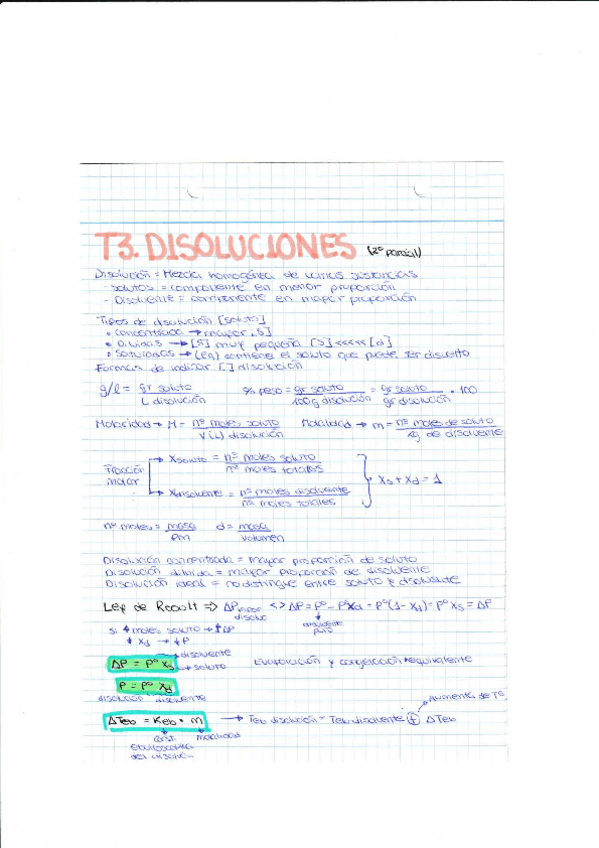 T3. DISOLUCIONES (2º parcial)
Disolución = Mezcla homogénea de varias sustancias
- Solutos = componente en menor proporción
- Disolvente = componente en mayor proporción
Tipos de disolución [soluto]
• Concentrada → mayor [S]
• Diluidas → [S] muy pequeña [S] <<<<< [d]
• Saturadas → (eq) contiene el soluto que puede ser disuelto
Formas de indicar [ ] disolución
g/l = gr soluto / L disolución
% peso = gr soluto / 100g disolución = gr soluto / gr disolución · 100
Molaridad → M = nº moles soluto / V(L) disolución
Molalidad → m = nº moles de soluto / Kg de disolvente
Fracción molar
Xsoluto = nº moles soluto / nº moles totales
Xdisolvente = nº moles disolvente / nº moles totales
Xs + Xd = 1
nº moles = masa / Pm
d = masa / volumen
Disolución concentrada = mayor proporción de soluto
Disolución diluida = mayor proporción de disolvente
Disolución ideal = no distingue entre soluto y disolvente
Ley de Raoult => ΔPvapor disoluc <> ΔP = Pº - PºXd = Pº(1 - Xd) = Pº Xs = ΔP
disolvente puro
si ↑ moles soluto → ↑ ΔP
↓ Xd → ↓ P
disolvente
ΔP = Pº Xs → soluto
Evaporación y congelación equivalente
P = Pº Xd
disolución disolvente
Aumenta de Tº
ΔTeb = Keb · m → Teb disolución = Teb disolvente + ΔTeb
const. molalidad
ebulloscópica
del